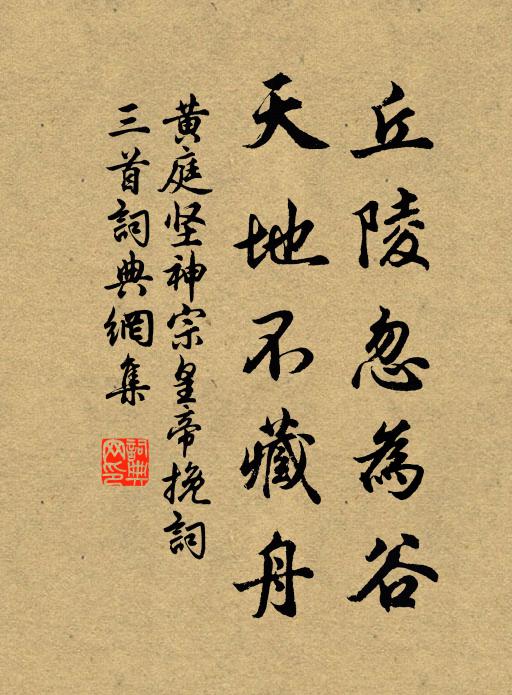 丘陵忽為谷
天地不藏舟
黄庭坚神宗皇帝挽詞
三首詞典網集
詞典
网印